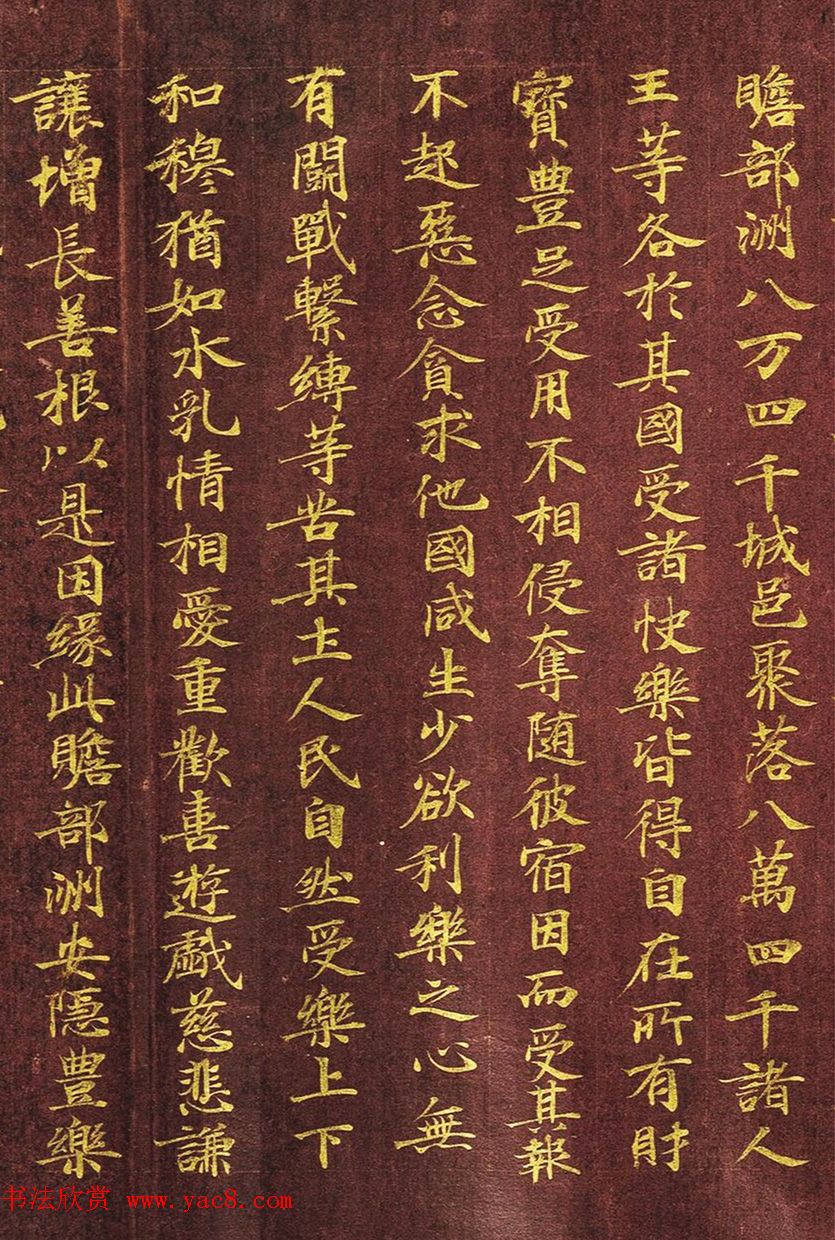 瞻部洲八万四千城邑聚落八萬四千諸人
王等各於其國受諸快樂皆得自在所有財
寶豐足受用不相侵奪随彼宿因而受其報
不起惡念貪求他國咸生少欲利樂之心無
有鬪戰繫縛等苦其土人民自然受樂上下
和穆猶如水乳情相愛重歡喜遊戲慈悲謙
讓增長善根以是因緣此贍部洲安隱豐樂
书法欣赏 www.yac8.com